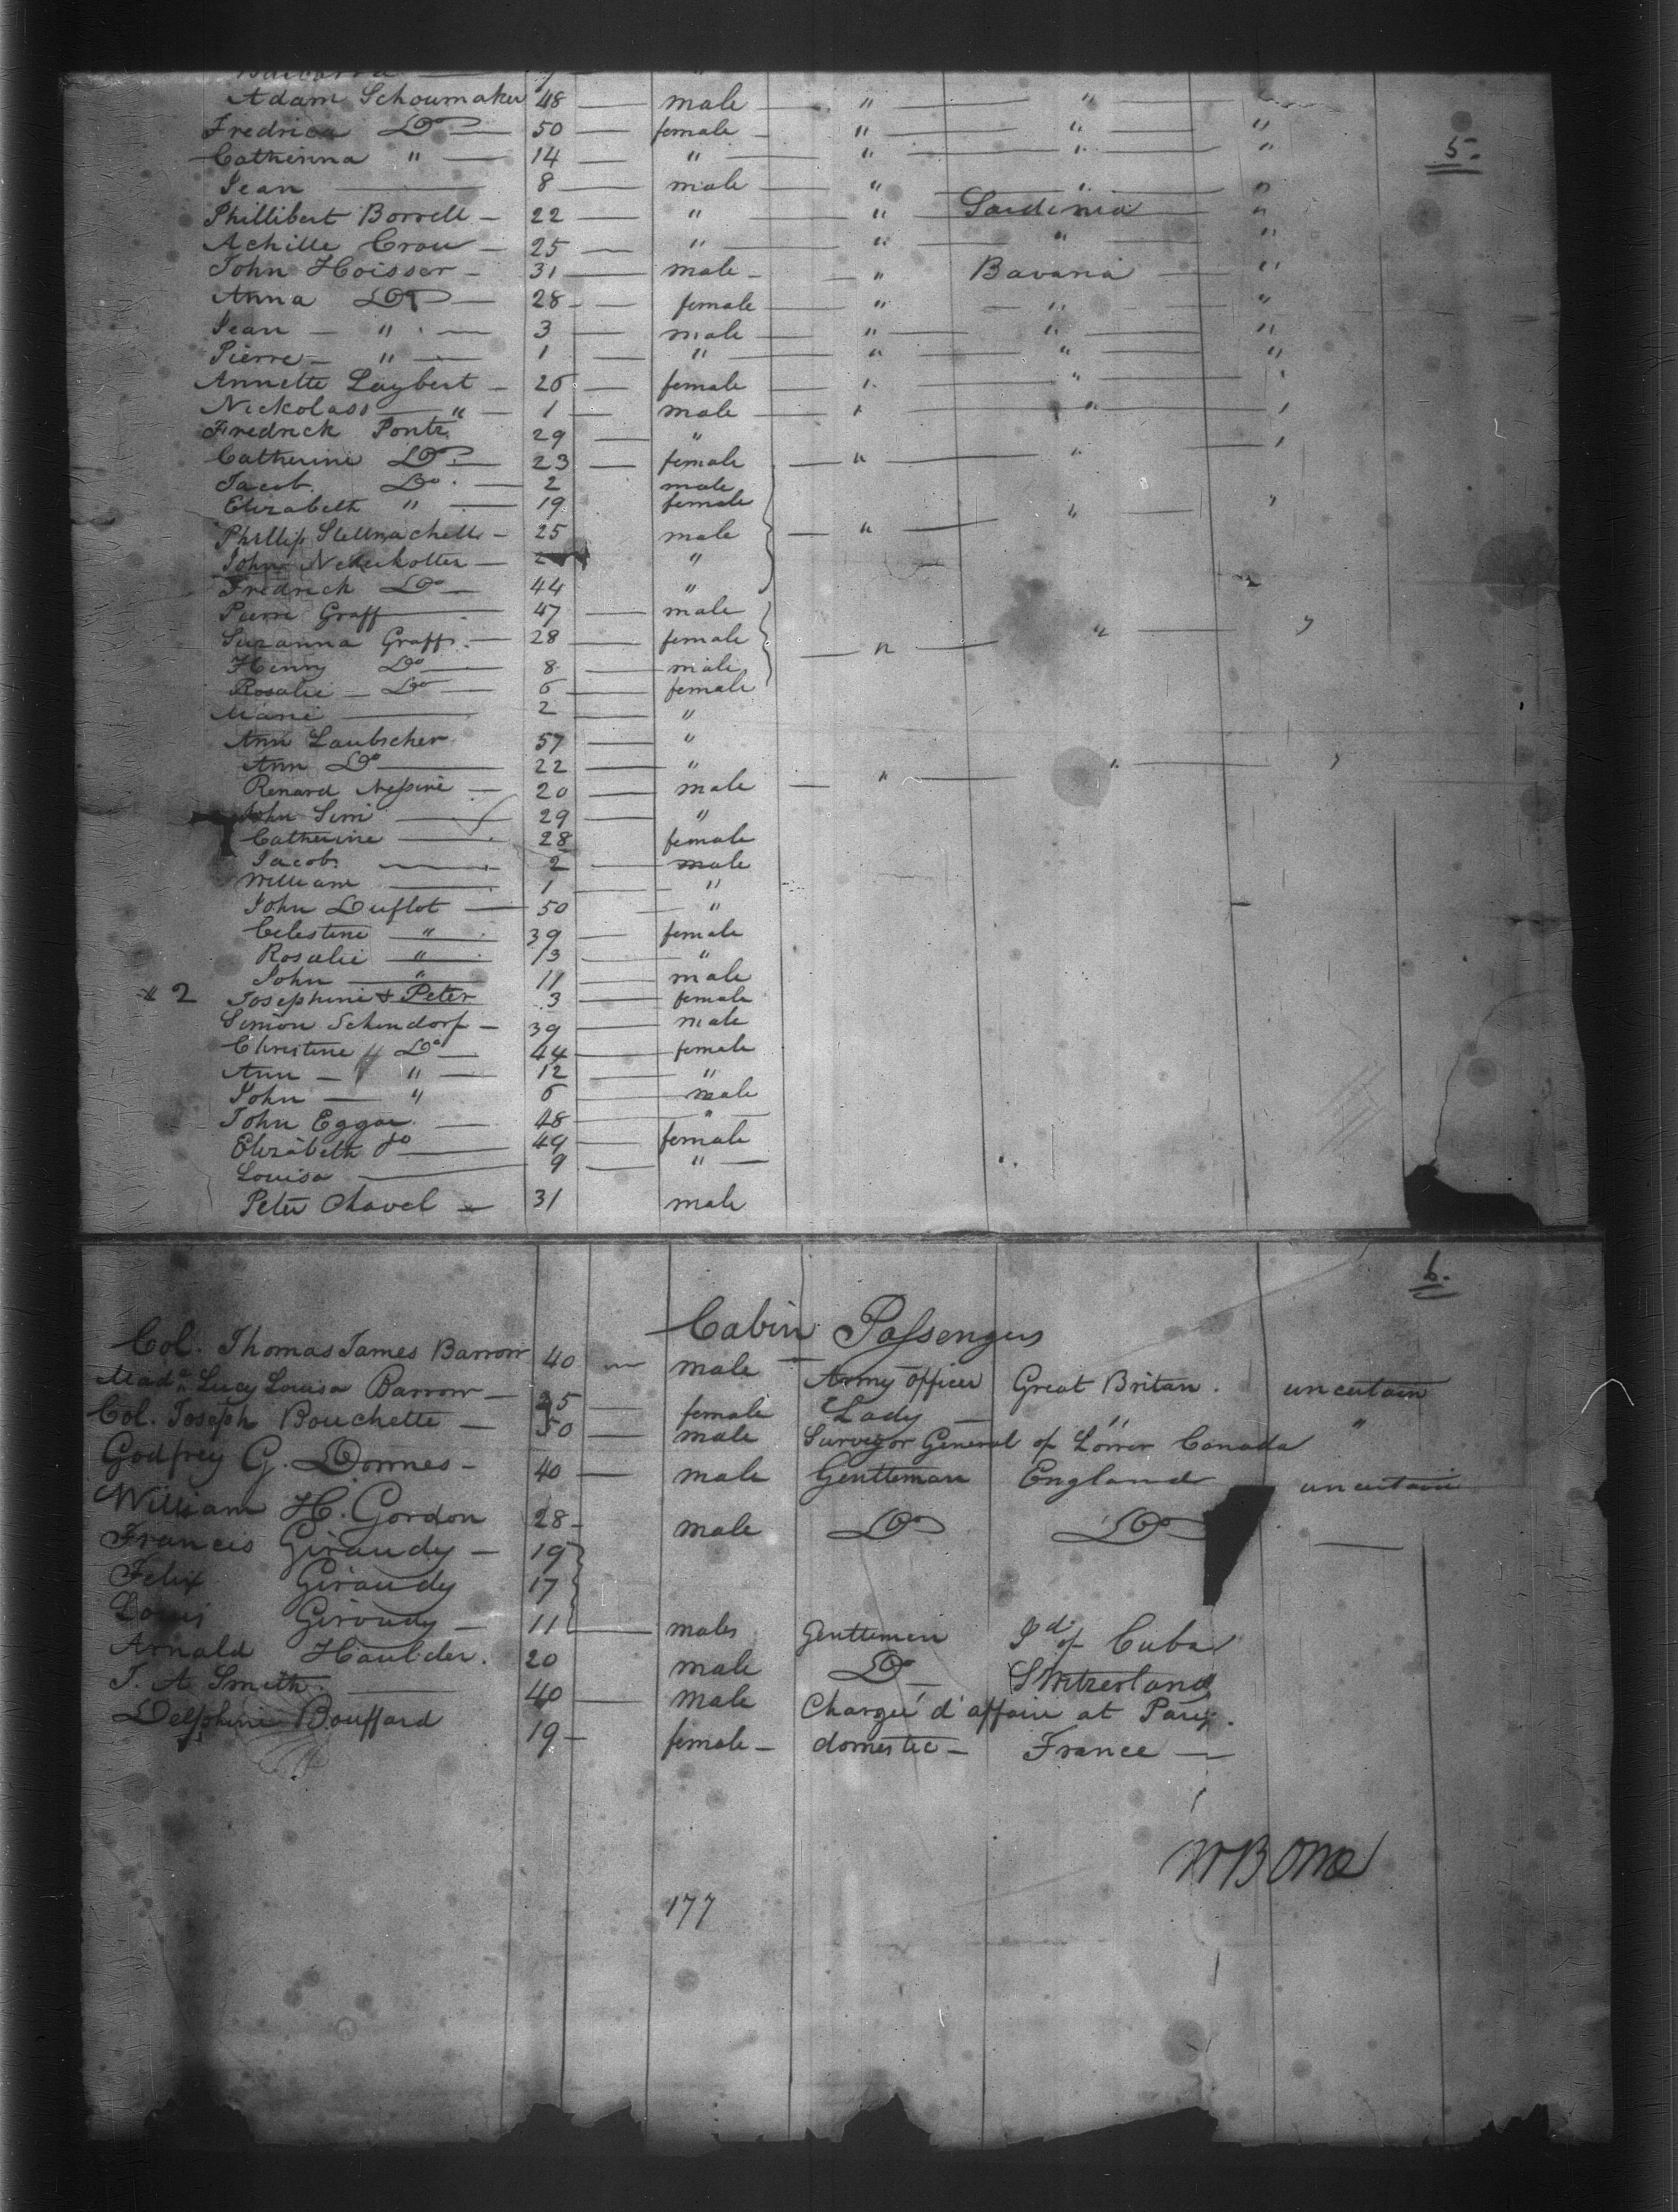 Adam Schoumaker 48 — male — " — " —
Fredrica Do — 50 — female — " — " — "
Catherinna " — 14 — " — " — " — "
Jean — 8 — male — " — " — "
5.
Phillibert Borrell — 22 — " " Sardinia — "
Achille Crou — 25 — " — " — " — "
John Hoisser — 31 — male — " Bavaria — "
Anna Do — 28 — female — " — " "
Jean — " — 3 — male — " — " — "
Pierre — " — 1 — " — " — " — "
Annette Laybert — 26 — female — " — " — "
Nickolass — " — 1 — male — " — " — "
Fredrick Pontz 29 — "
Catherine Do — 23 — female — " — " — "
Jacob Do — 2 male
Elizabeth " — 19 female " — "
Phillip — 25 male — " —
John — "
Fredrick Do — 44 "
Pierre Graff — 47 — male
Suzanna Graff — 28 — female — " — " — "
Henry Do — 8 — male
Rosalie — Do — 6 — female
Marie — 2 — "
Ann Laubscher 57 — "
Ann Do — 22 — "
Renard — 20 — male — " — " — "
John — 29 — "
Catherine — 28 female
Jacob — 2 — male
William — 1 — "
John Duflot — 50 — "
Celestine — " — 39 — female
Rosalie — " — 13 — "
John — " — 11 — male
" 2 Josephine & Peter 3 — female
Simon Schendorf — 39 — male
Christine " Do — 44 — female
Ann — " — 12 — "
John — " 6 — male
John Eggar — 48 — "
Elizabeth do — 49 — female
Louisa — 9 — " —
Peter Chavel — 31 male
6.
Cabin Passengers
Col. Thomas James Barrow 40 — male — Army officer Great Britan. uncertain
Mad. Lucy Louisa Barrow — 35 — female Lady — " "
Col. Joseph Bouchette — 50 — male Surveyor General of Lower Canada
Godfrey G. Downes — 40 — male Gentleman England uncertain
William H. Gordon 28 — male Do Do —
Francis Giraudy — 19
Felix Giraudy 17
Louis Giroudy — 11 — males Gentlemen Id. of Cuba
Arnald Haulder. 20 male Do — Switzerland
J. A Smith. — 40 — male Chargé d'affair at Paris.
Delphine Bouffard 19 — female — domestic — France —
177